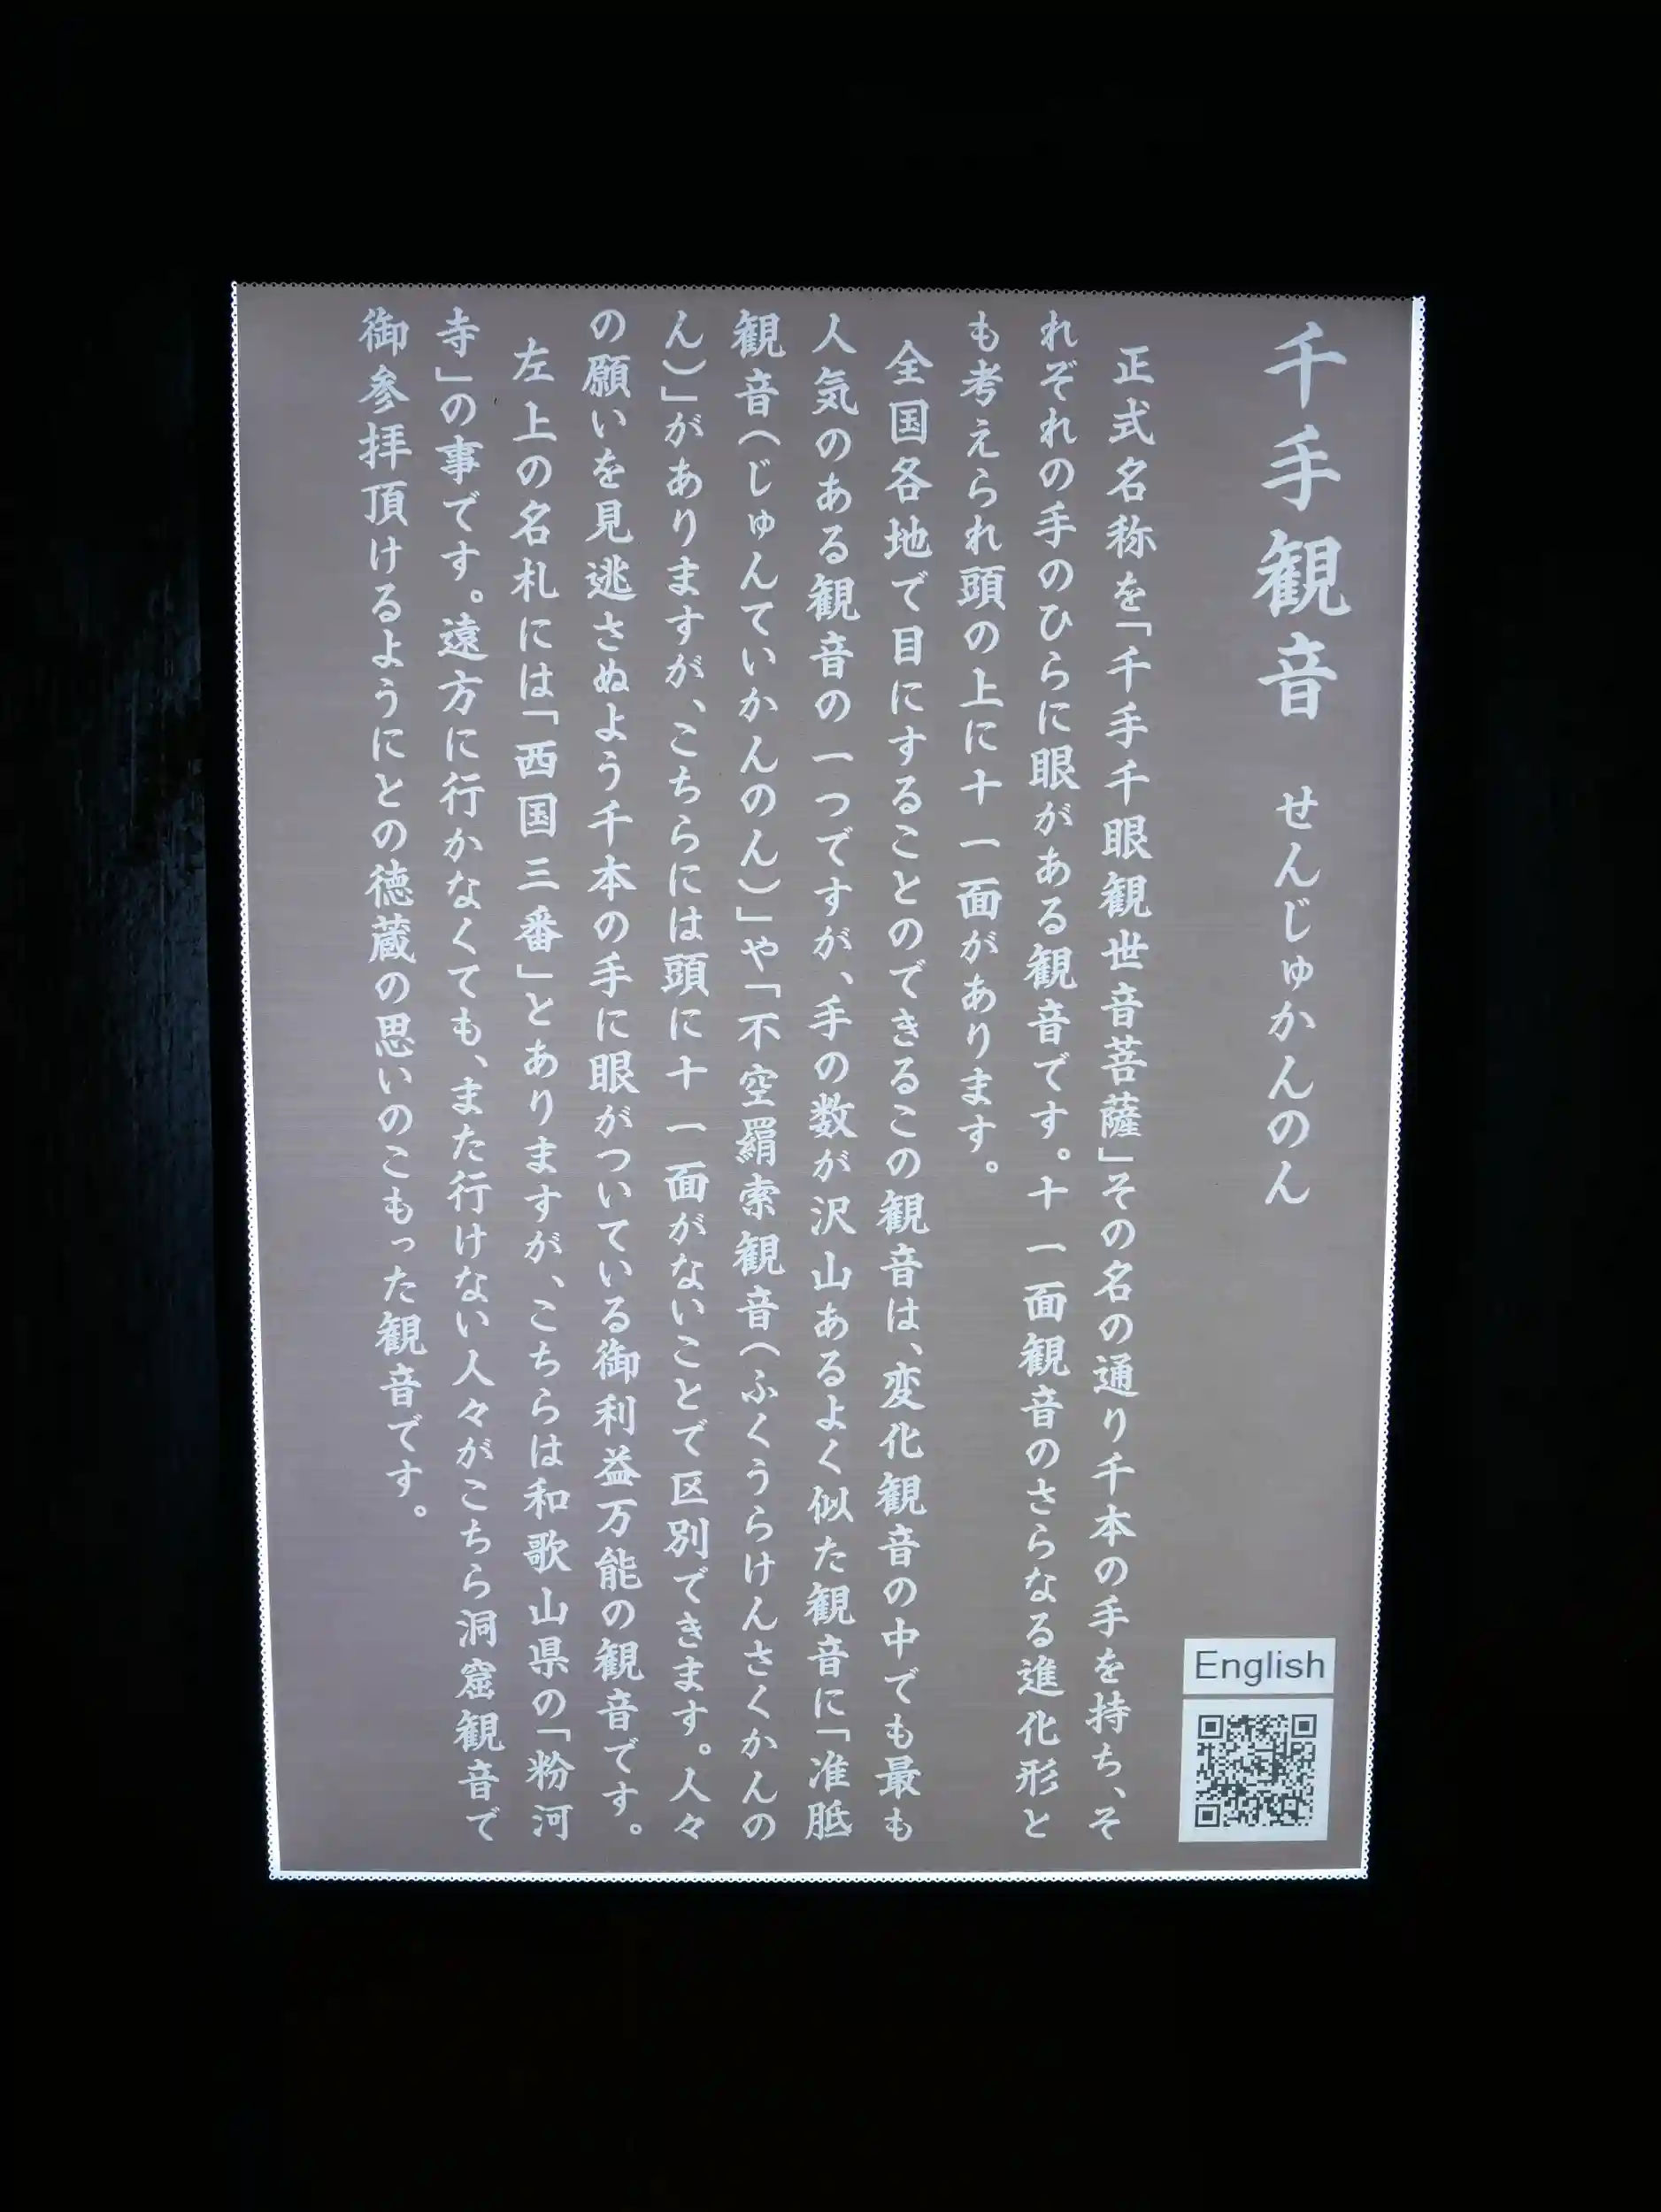 千手観音　せんじゅかんのん
正式名称を「千手千眼観世音菩薩」その名の通り千本の手を持ち、そ
れぞれの手のひらに眼がある観音です。十一面観音のさらなる進化形と
も考えられ頭の上に十一面があります。
全国各地で目にすることのできるこの観音は、変化観音の中でも最も
人気のある観音の一つですが、手の数が沢山あるよく似た観音に「准胝
観音（じゅんていかんのん）」や「不空羂索観音（ふくうらけんさくかんの
ん）」がありますが、こちらには頭に十一面がないことで区別できます。人々
の願いを見逃さぬよう千本の手に眼がついている御利益万能の観音です。
左上の名札には「西国三番」とありますが、こちらは和歌山県の「粉河
寺」の事です。遠方に行かなくても、また行けない人々がこちら洞窟観音で
御参拝頂けるようにとの徳蔵の思いのこもった観音です。
English